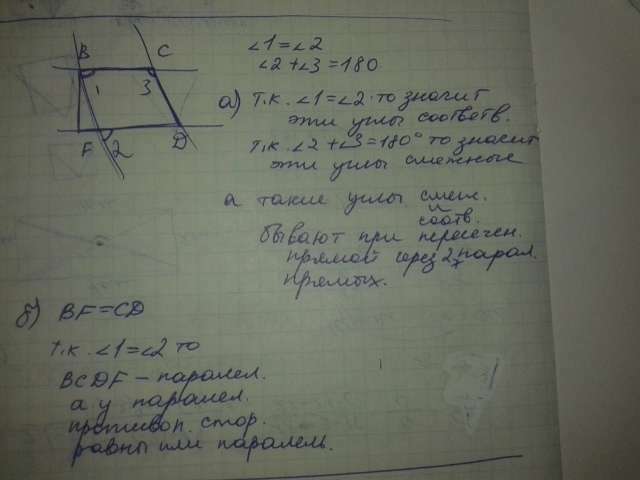 B C
1 3
F 2 D
∠1=∠2
∠2+∠3=180
а) т.к. ∠1=∠2 то значит
эти углы соответв.
т.к. ∠2+∠3=180° то значит
эти углы смежные
а такие углы смеж.
и
соотв.
бывают при пересечен.
прямой через 2х парал.
прямых.
б) BF=CD
т.к. ∠1=∠2 то
BCDF – паралел.
а у паралел.
противоп. стор.
равны или паралель.